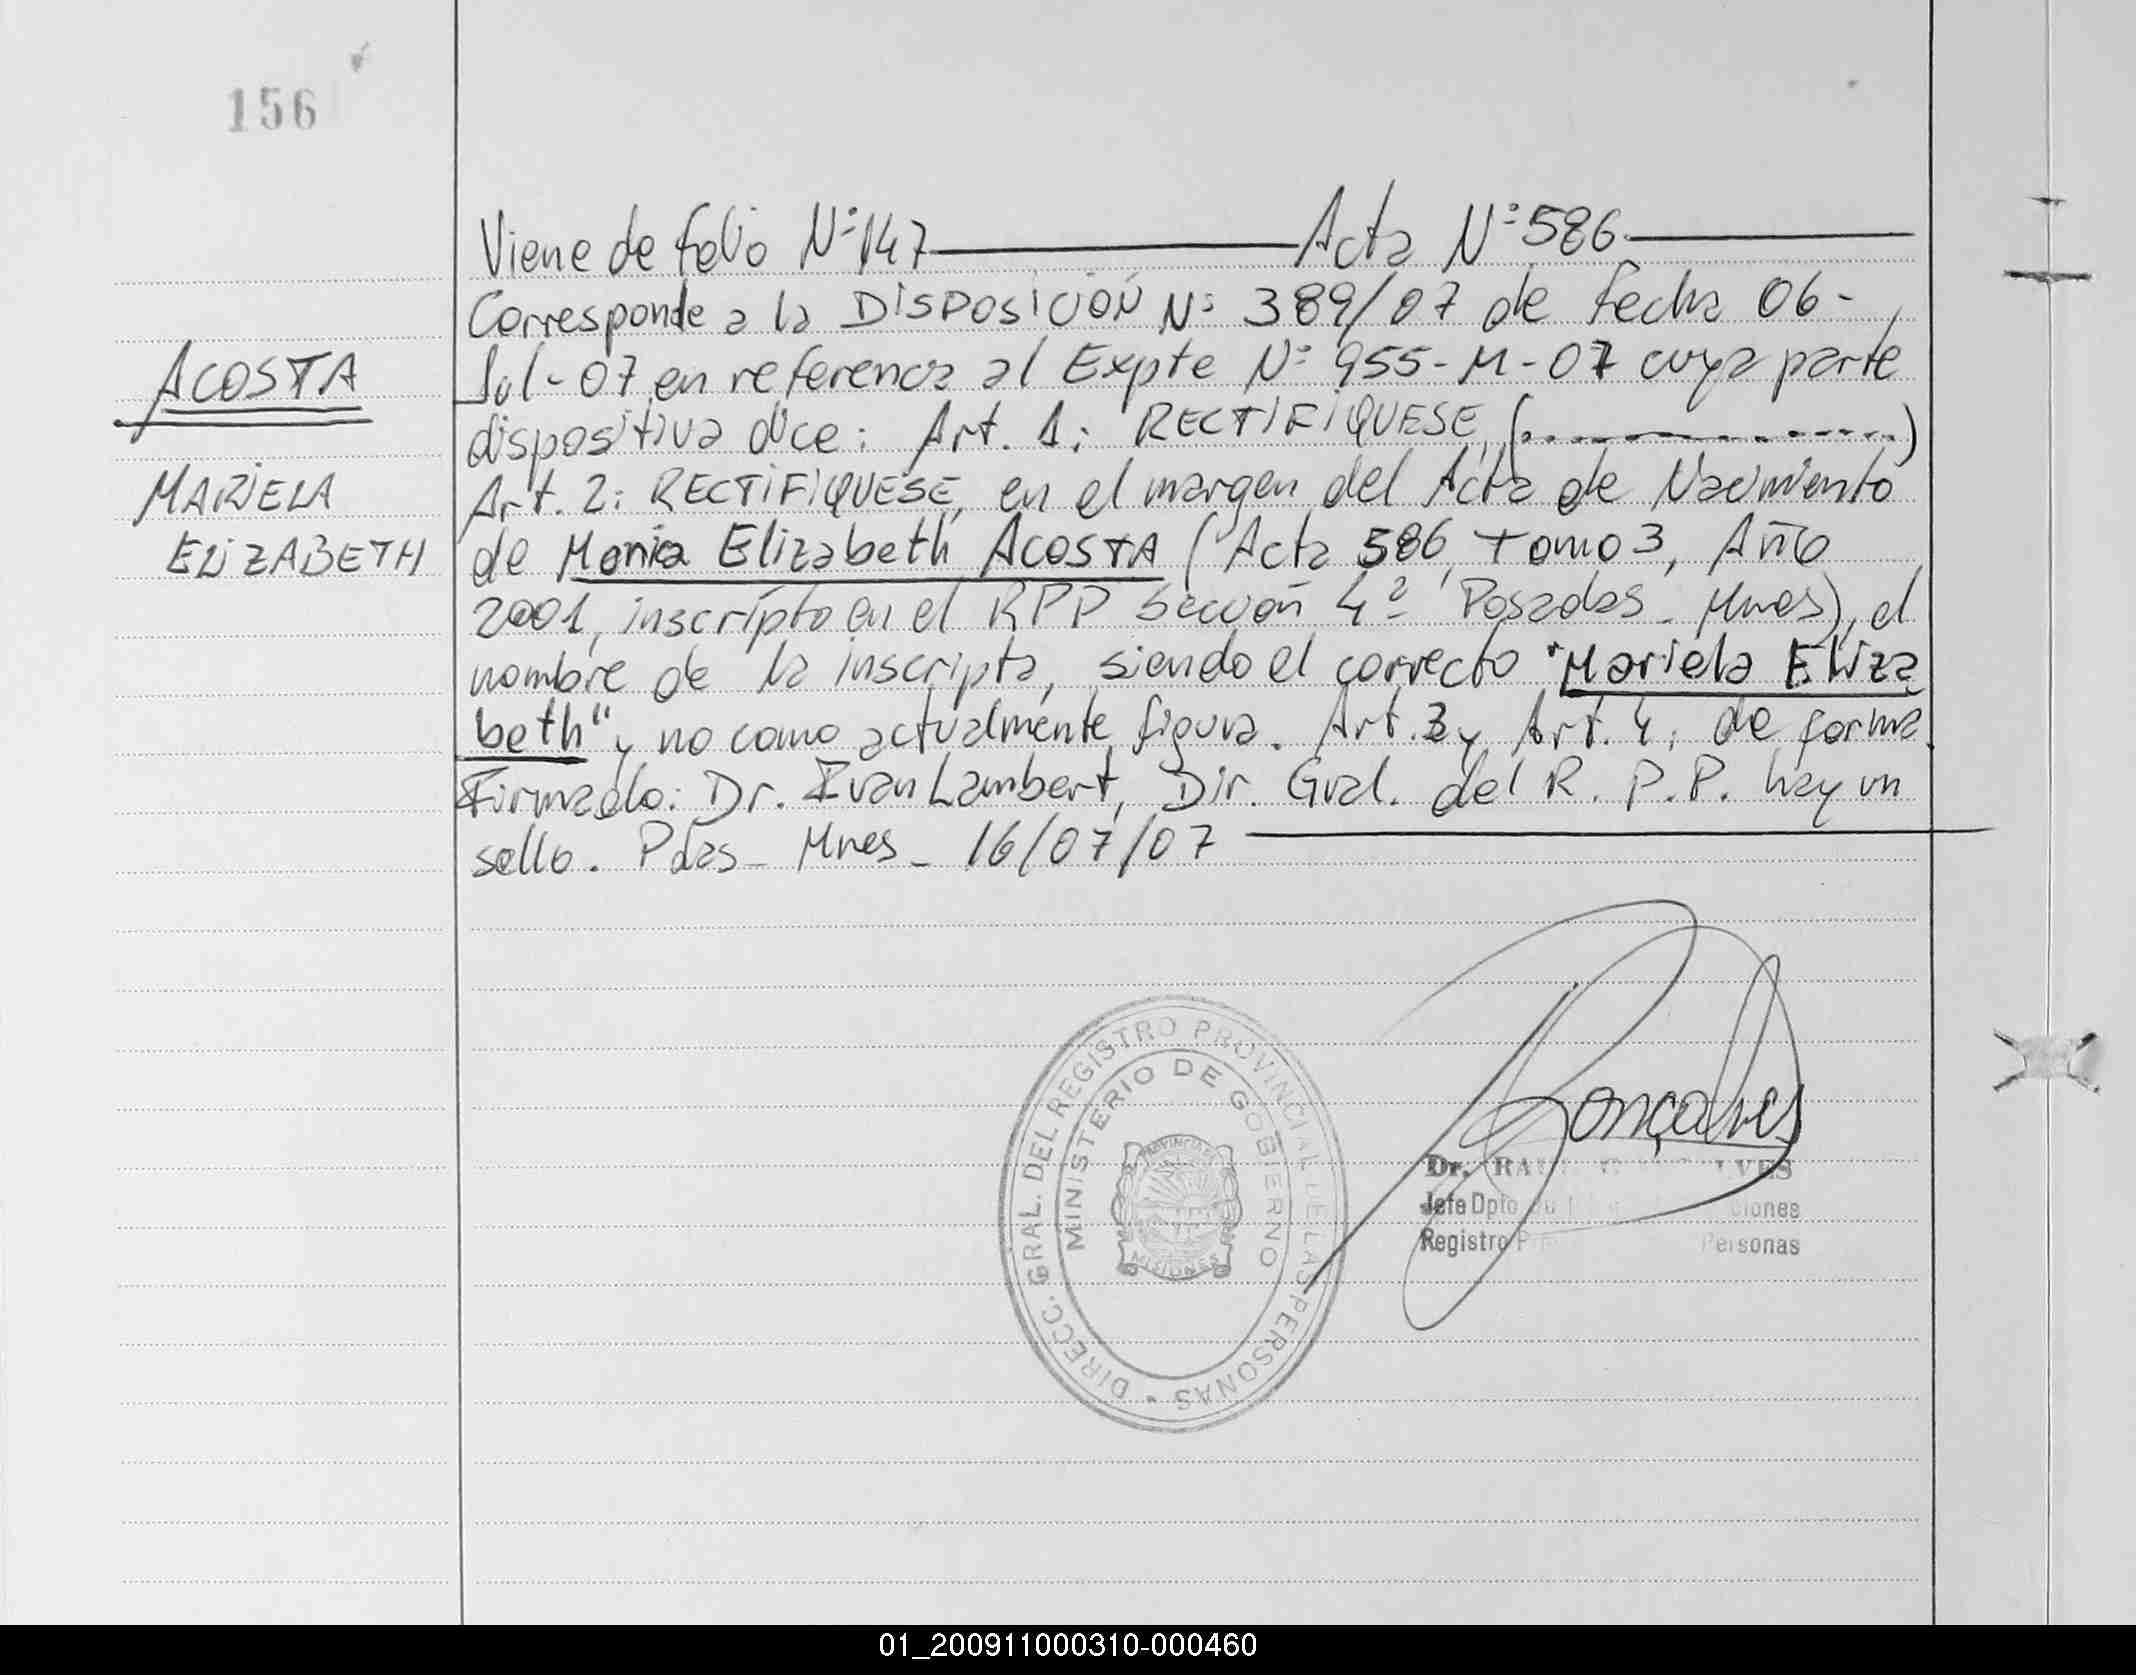 156
Viene de folio Nº 147 Acta Nº 586
Corresponde a la DISPOSICIÓN Nº 389/07 de fecha 06-
Jul-07 en referencia al Expte Nº 955-M-07 cuya parte
dispositiva dice: Art. 1: RECTIFIQUESE, (..........)
Art. 2: RECTIFIQUESE, en el margen del Acta de Nacimiento
de Maria Elizabeth ACOSTA (Acta 586, Tomo 3, Año
2001, inscripto en el RPP Sección 4º Posadas - Mnes), el
nombre de la inscripta, siendo el correcto "Mariela Eliza
beth" y no como actualmente figura. Art. 3 y Art. 4: de forma.
Firmado: Dr. Ivan Lambert, Dir. Gral. del R. P. P. hay un
sello. Pdas - Mnes - 16/07/07
ACOSTA
MARIELA
ELIZABETH
DIRECC. GRAL. DEL REGISTRO PROVINCIAL DE LAS PERSONAS
MINISTERIO DE GOBIERNO
PROVINCIA DE
MISIONES
Gonçalves
Dr.
Jefe Dpto
Registro Personas
01_200911000310-000460